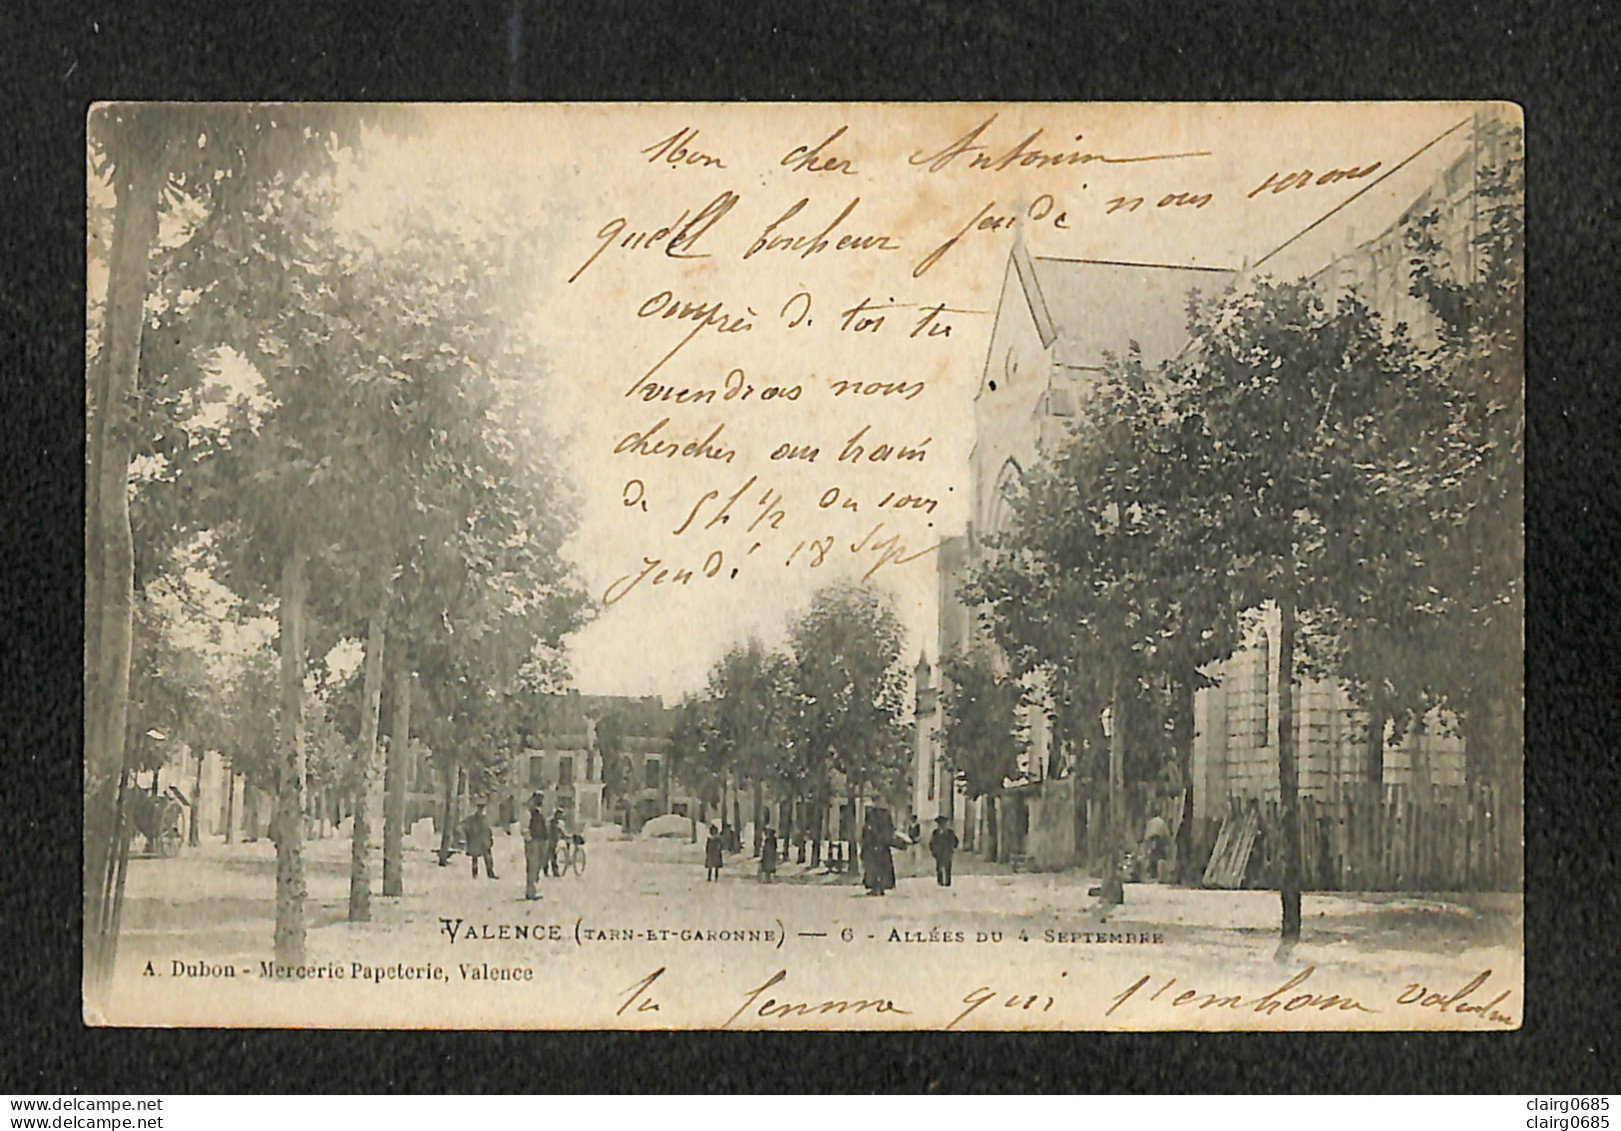 Mon cher Antonin
quell bonheur jeudi nous serons
auprès de toi tu
viendras nous
chercher au train
de 5h 1/2 du soir
jeudi 18 Sep
VALENCE (TARN-ET-GARONNE) — 6 - ALLÉES DU 4 SEPTEMBRE
A. Dubon - Mercerie Papeterie, Valence
ta femme qui t'embrasse
www.delcampe.net
www.delcampe.net
clairg0685
clairg0685